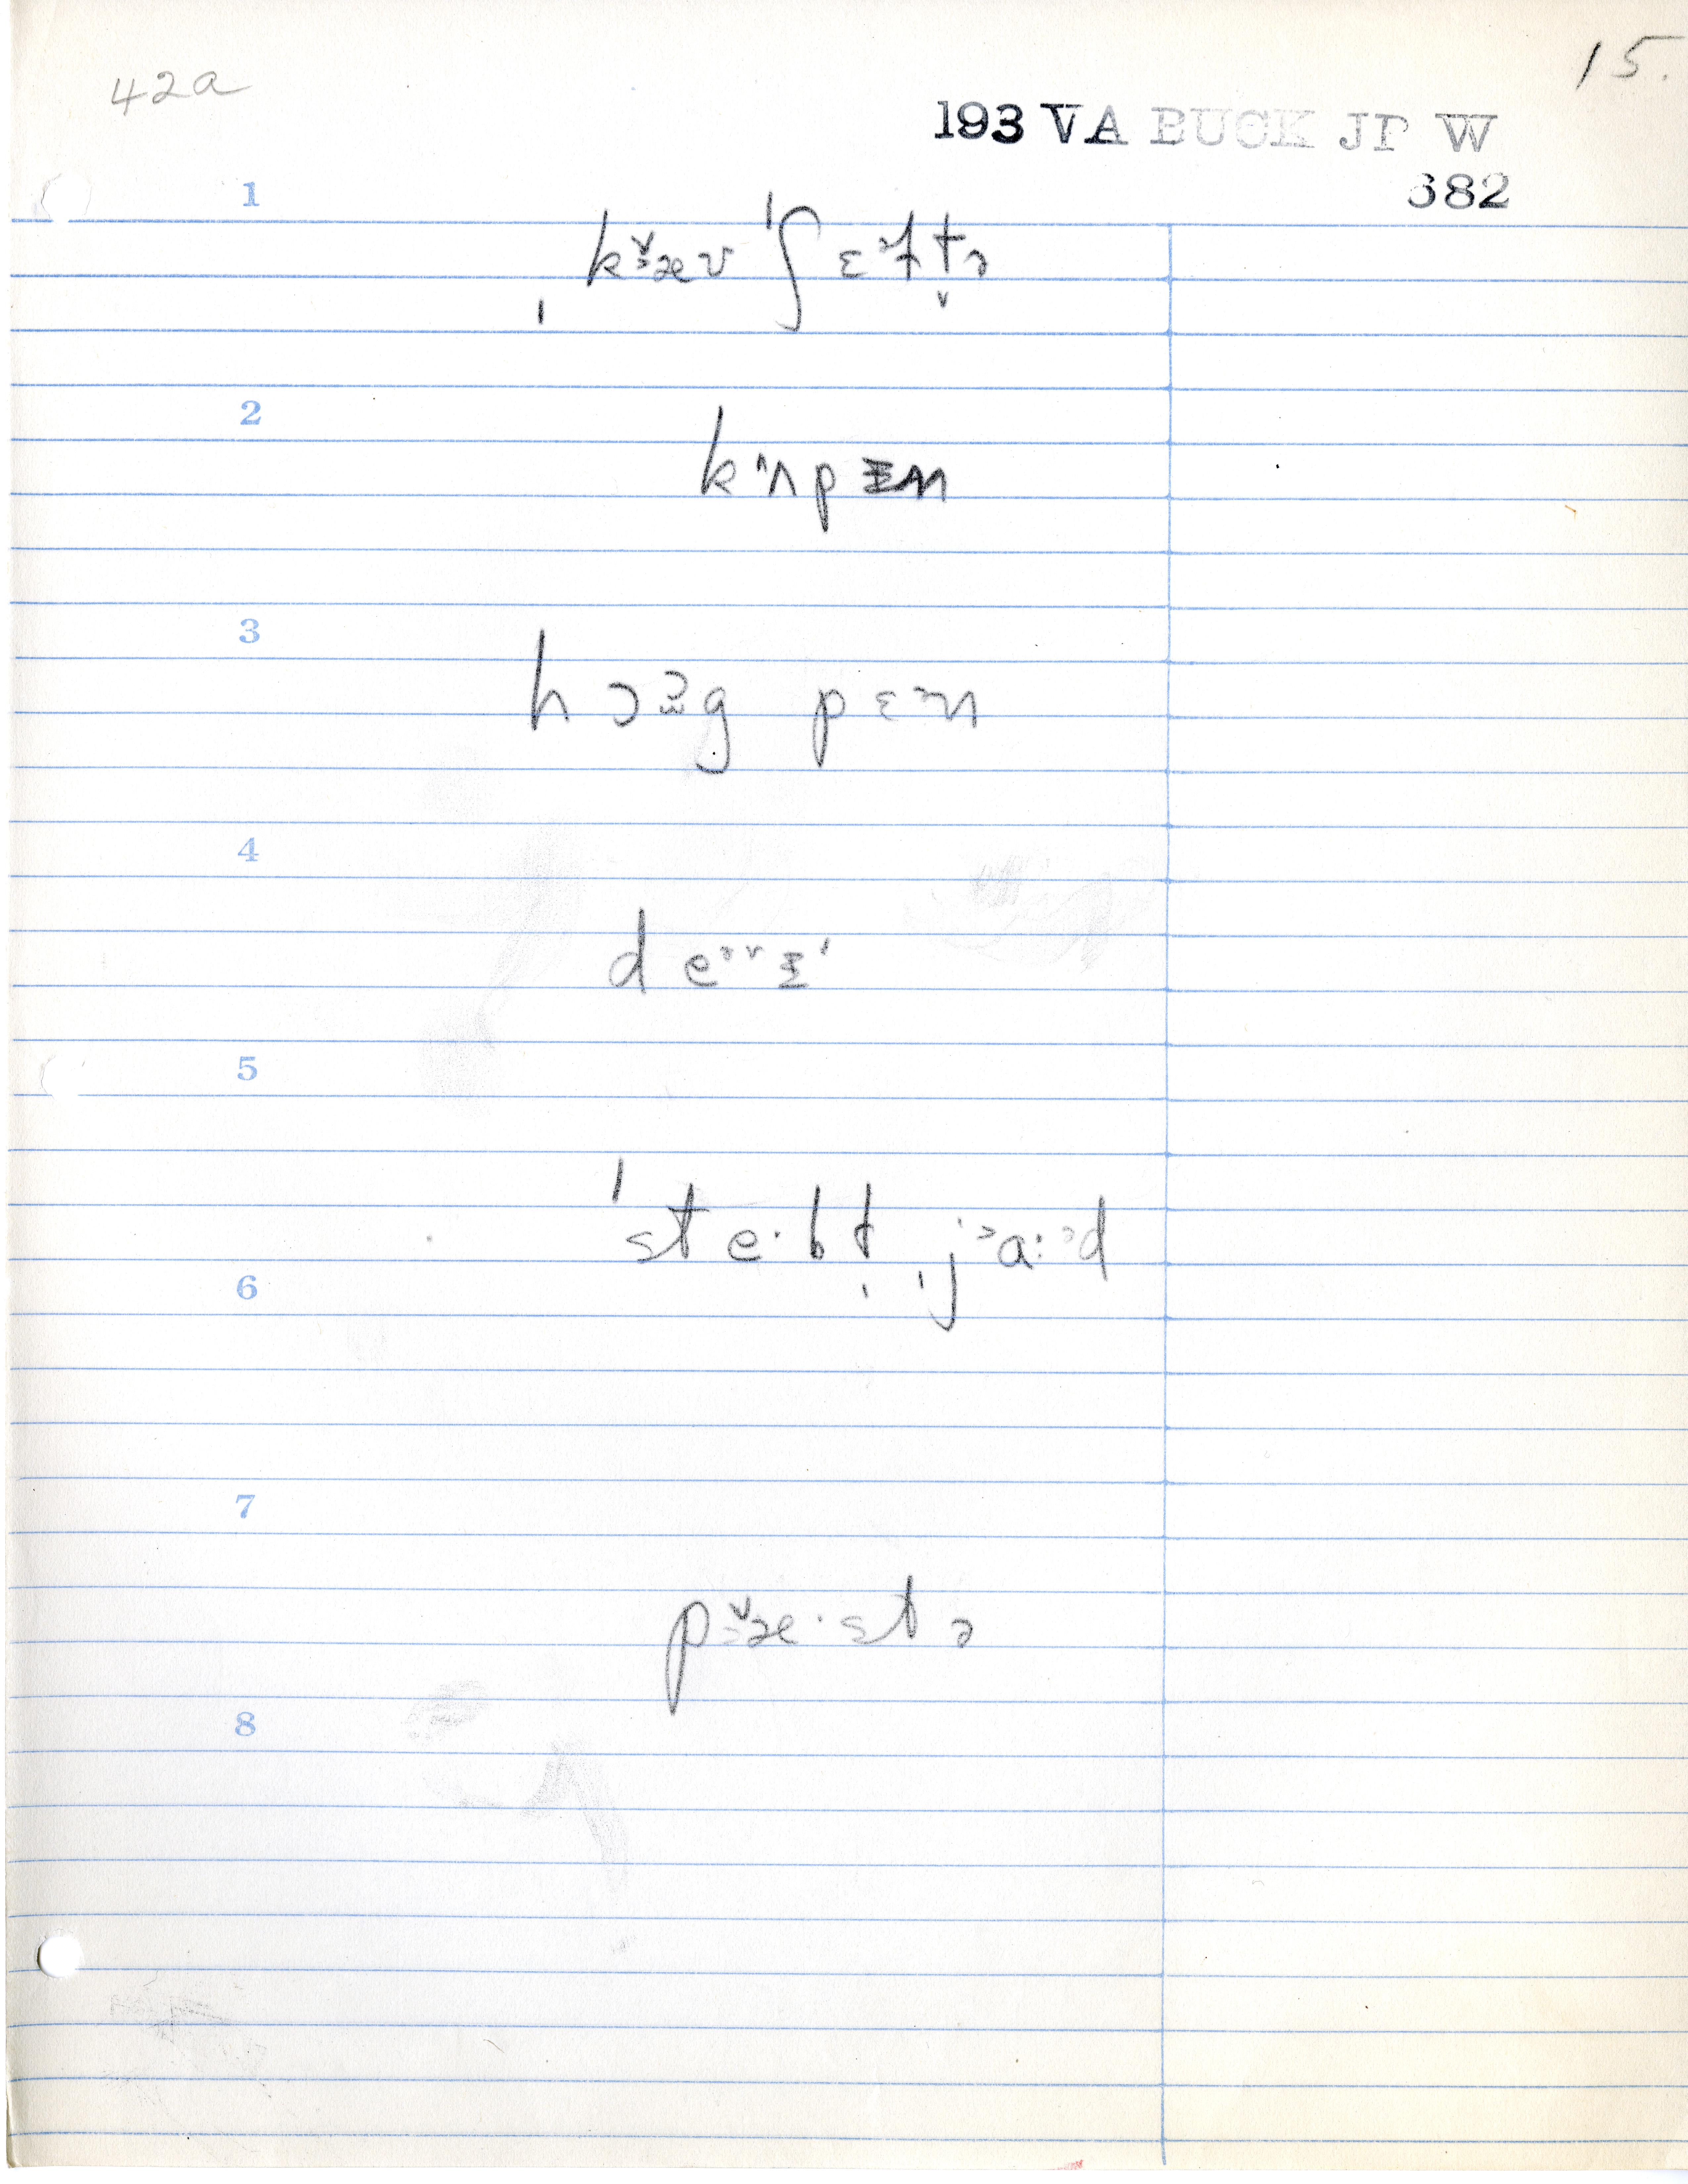 42a
15.
193 VA BUCK JP W
682
1
ˌkæv ˈʃɛᵊftə
2
kʌpɪn
3
hɔg pɛᵊn
4
deᵊrɪ
5
ˈste·bɫ ˌjɑːd
6
7
pæ·stə
8